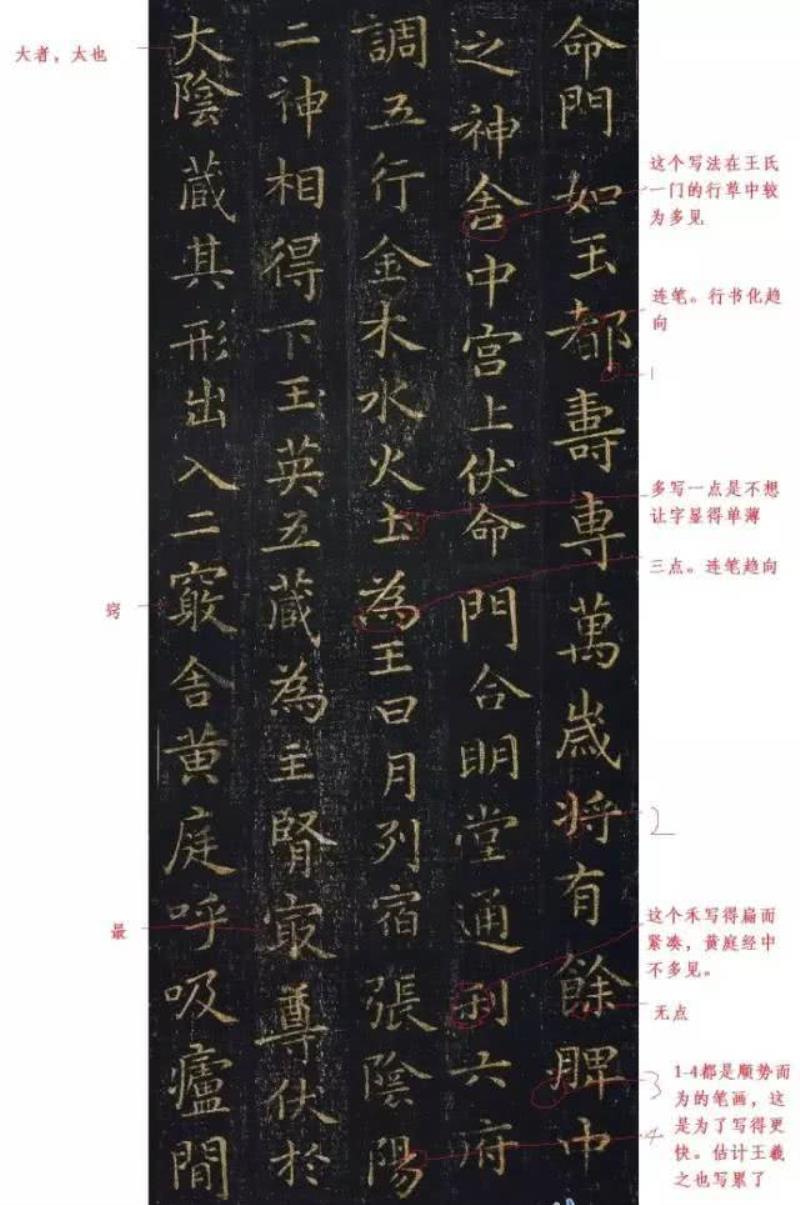 命門如玉都壽專萬歲将有餘脾中
之神舎中宫上伏命門合明堂通利六府
調五行金木水火土為王日月列宿張陰陽
二神相得下玉英五蔵為主腎㝡尊伏於
大陰蔵其形出入二竅舎黄庭呼吸廬間
这个写法在王氏
一门的行草中较
为多见
连笔。行书化趋
向
1
多写一点是不想
让字显得单薄
三点。连笔趋向
2
这个禾写得扁而
紧凑，黄庭经中
不多见。
无点
3
4
1-4都是顺势而
为的笔画，这
是为了写得更
快。估计王羲
之也写累了
大者，太也
窍
最